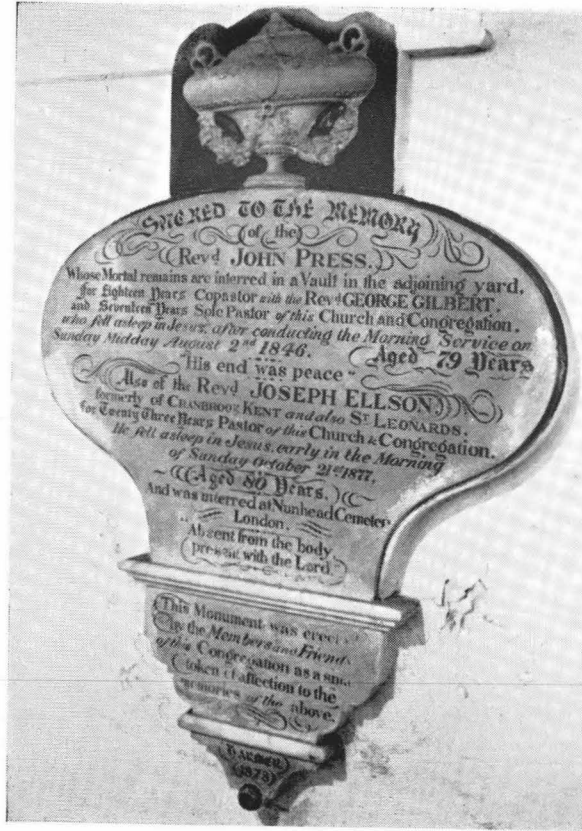 SACRED TO THE MEMORY
(of the)
Revd. JOHN PRESS.
Whose Mortal remains are interred in a Vault in the adjoining yard.
for Eighteen Years Copastor with the Revd GEORGE GILBERT.
and Seventeen Years Sole Pastor of this Church and Congregation.
who fell asleep in Jesus, after conducting the Morning Service on
Sunday Midday August 2nd 1846. Aged 79 Years
"His end was peace"
Also of the Revd JOSEPH ELLSON
formerly of CRANBROOK KENT and also ST LEONARDS.
for Twenty Three Years Pastor of this Church & Congregation.
He fell asleep in Jesus, early in the Morning
of Sunday October 21st 1877.
(Aged 80 Years.)
And was interred at Nunhead Cemetery
London.
Absent from the body
present with the Lord
This Monument was erected
by the Members and Friends
of this Congregation as a small
token of affection to the
memories of the above.
HARMER
1878